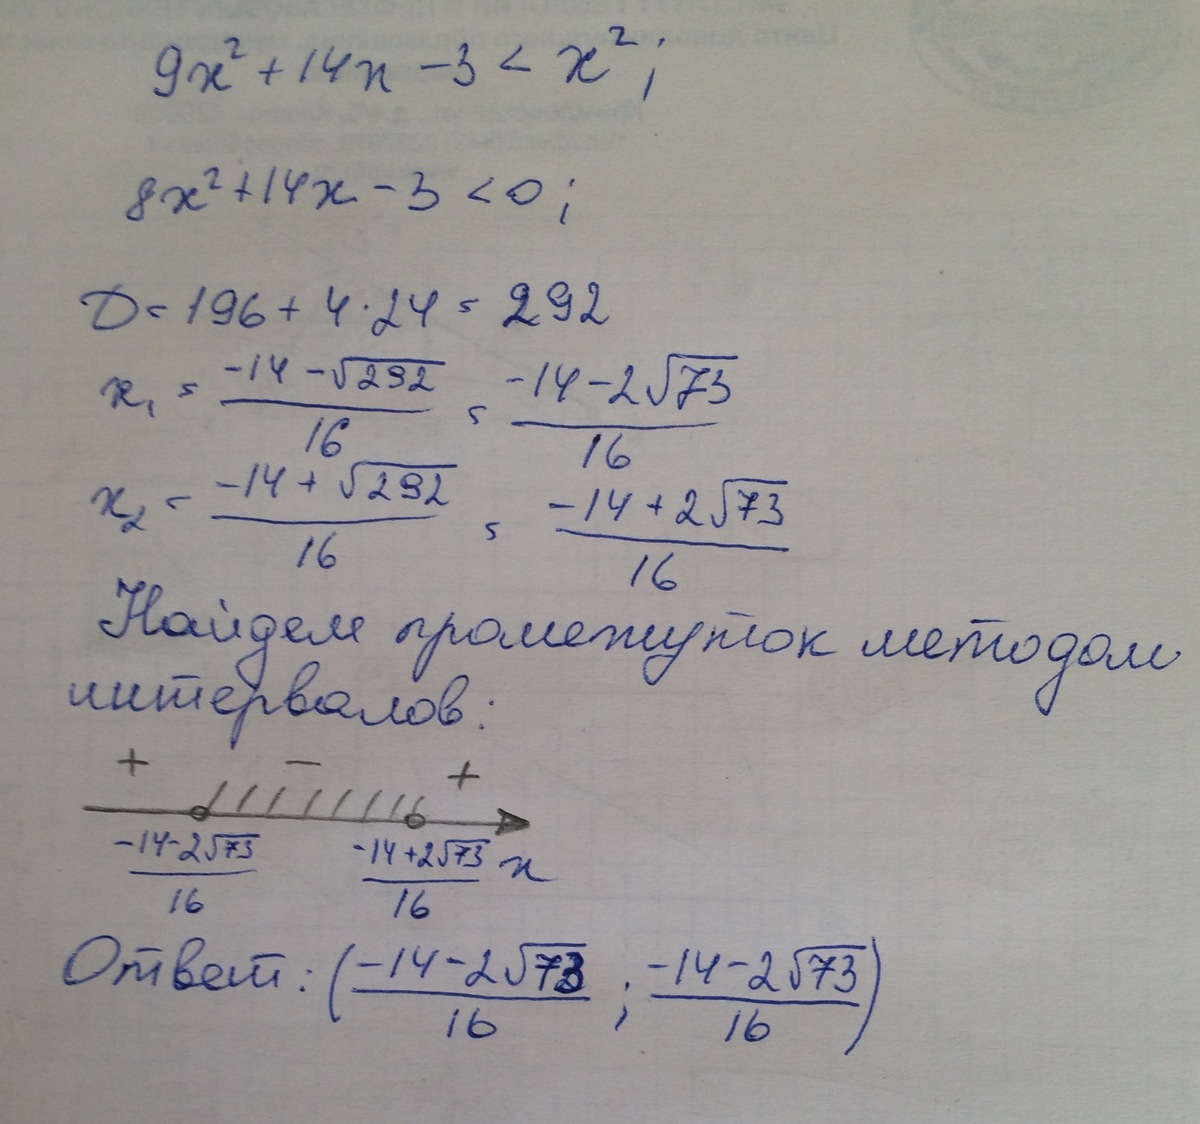 9x² + 14x - 3 < x²;
8x² + 14x - 3 < 0;
D = 196 + 4·24 = 292
x₁ = (-14 - √292)/16 = (-14 - 2√73)/16
x₂ = (-14 + √292)/16 = (-14 + 2√73)/16
Найдем промежуток методом
интервалов:
+ − +
(-14-2√73)/16 (-14+2√73)/16 x
Ответ: ((-14 - 2√73)/16 ; (-14 - 2√73)/16)